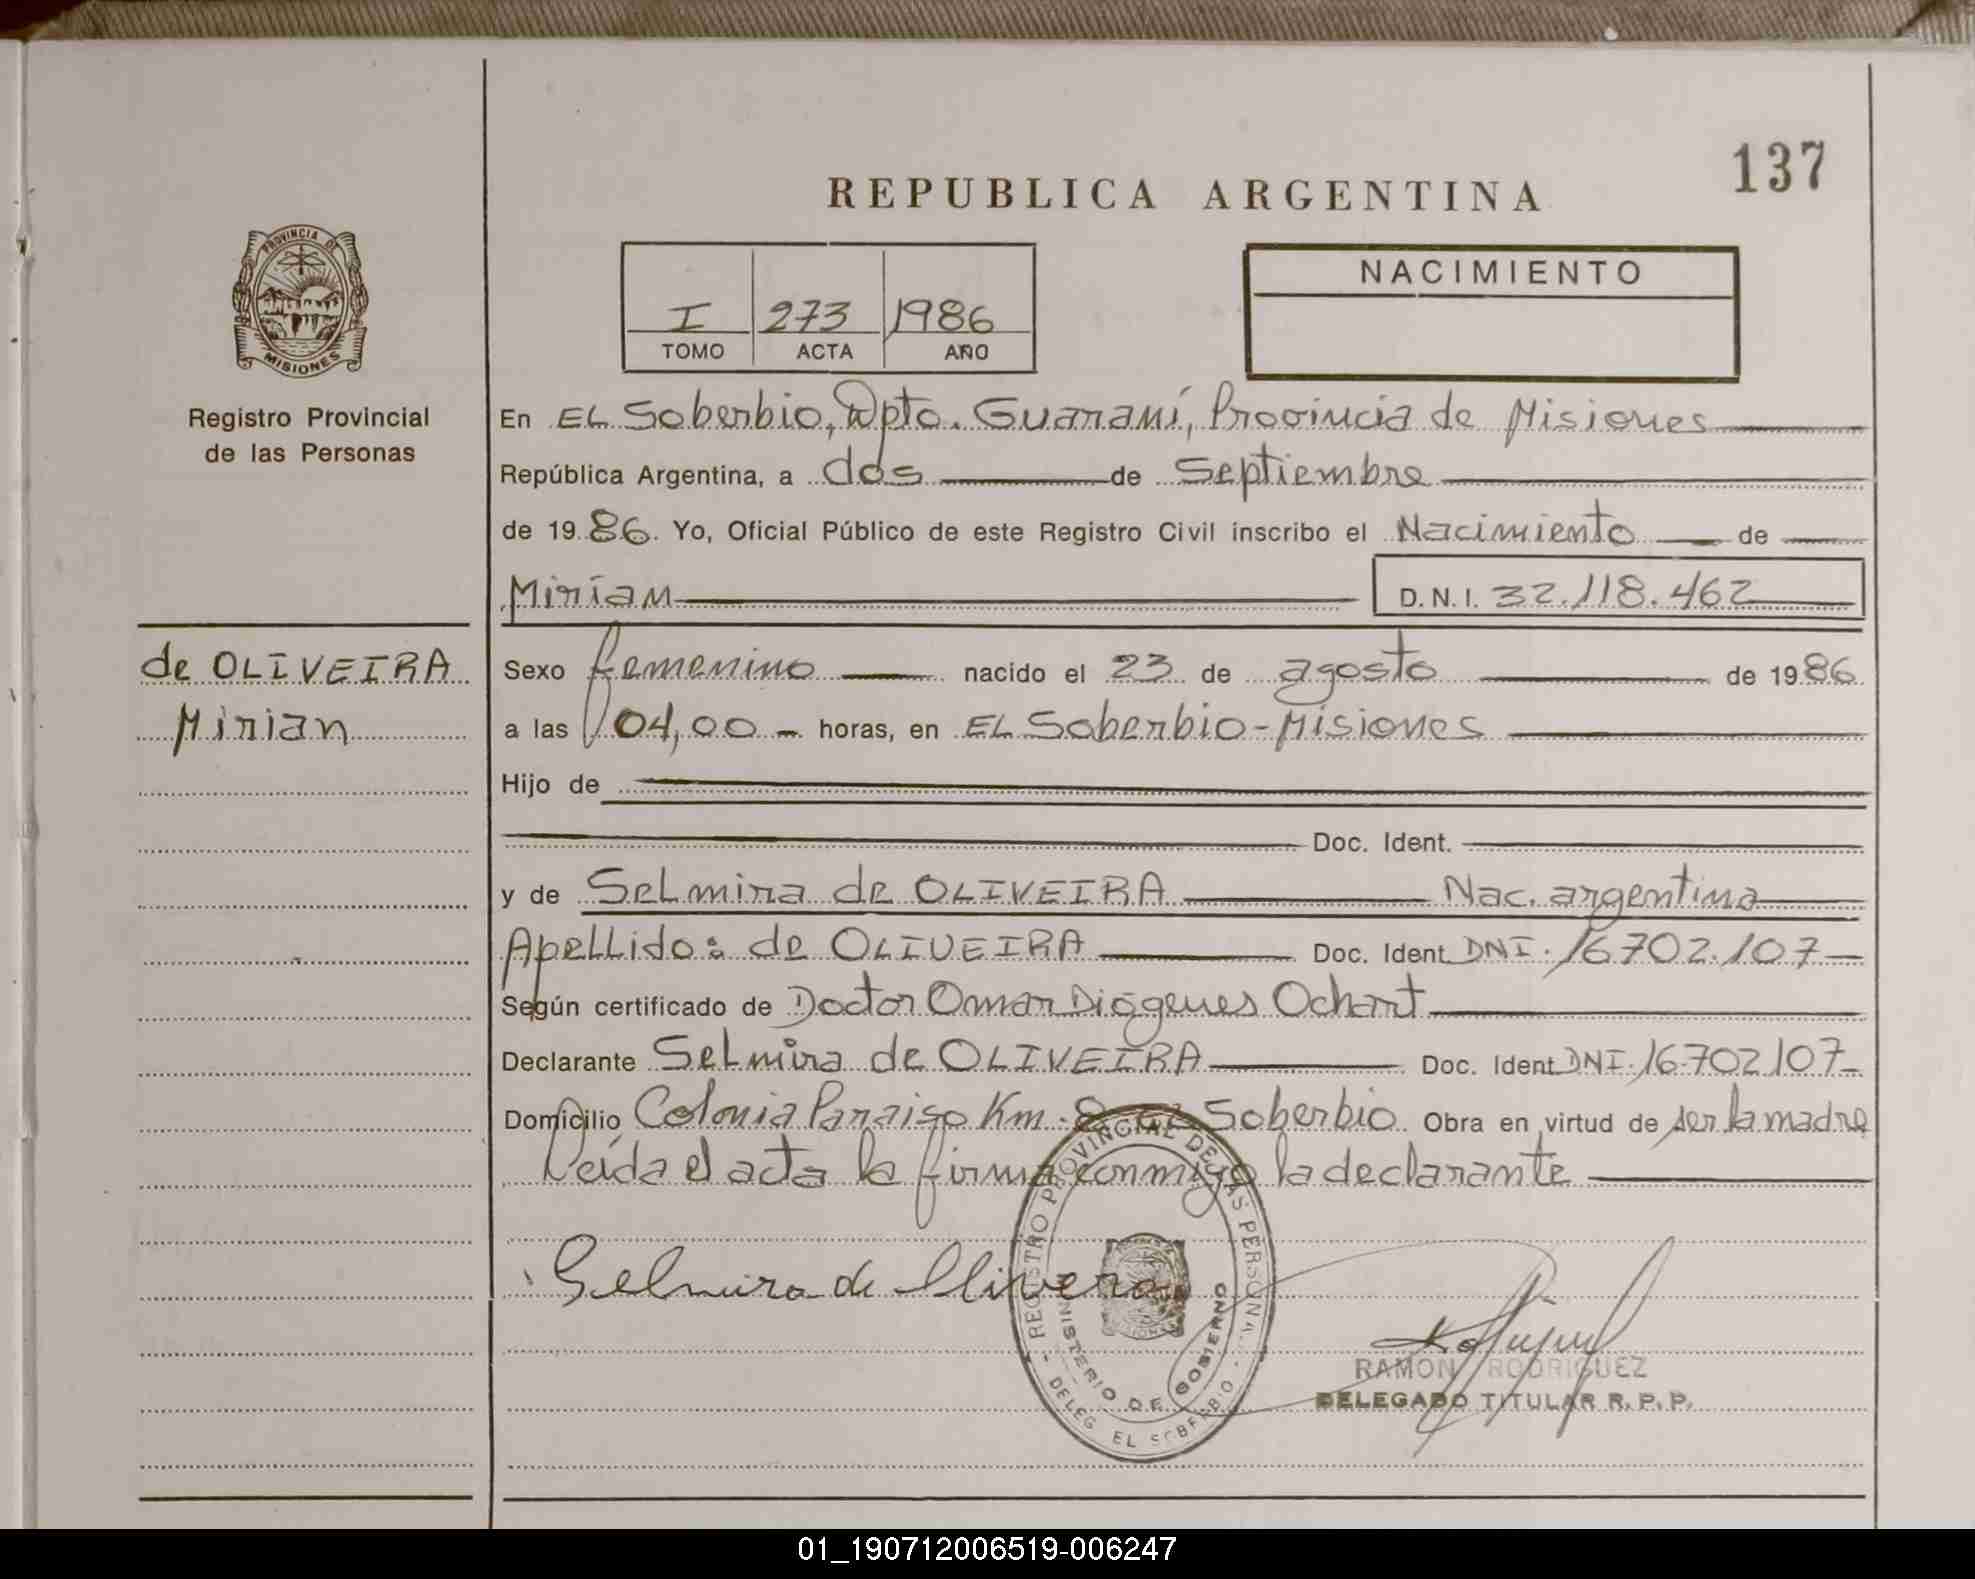 137
REPUBLICA ARGENTINA
PROVINCIA DE MISIONES
Registro Provincial
de las Personas
I 273 1986
TOMO ACTA AÑO
NACIMIENTO
En EL Soberbio, Dpto. Guaraní, Provincia de Misiones
República Argentina, a dos de Septiembre
de 1986. Yo, Oficial Público de este Registro Civil inscribo el Nacimiento de
Mirian D.N.I. 32.118.462
de OLIVEIRA
Mirian
Sexo femenino nacido el 23 de agosto de 1986
a las 04,00 - horas, en EL Soberbio - Misiones
Hijo de
Doc. Ident.
y de Selmira de OLIVEIRA Nac. argentina
Apellido: de OLIVEIRA Doc. Ident. DNI. 16702.107
Según certificado de Doctor Omar Diógenes Ochart
Declarante Selmira de OLIVEIRA Doc. Ident DNI. 16.702107
Domicilio Colonia Paraiso Km. 8 Soberbio Obra en virtud de ser la madre
Leída el acta la firma conmigo la declarante
Selmira de Olivera
REGISTRO PROVINCIAL DE LAS PERSONAS
MINISTERIO DE GOBIERNO
- DELEG. EL SOBERBIO -
RAMON RODRIGUEZ
DELEGADO TITULAR R. P. P.
01_190712006519-006247